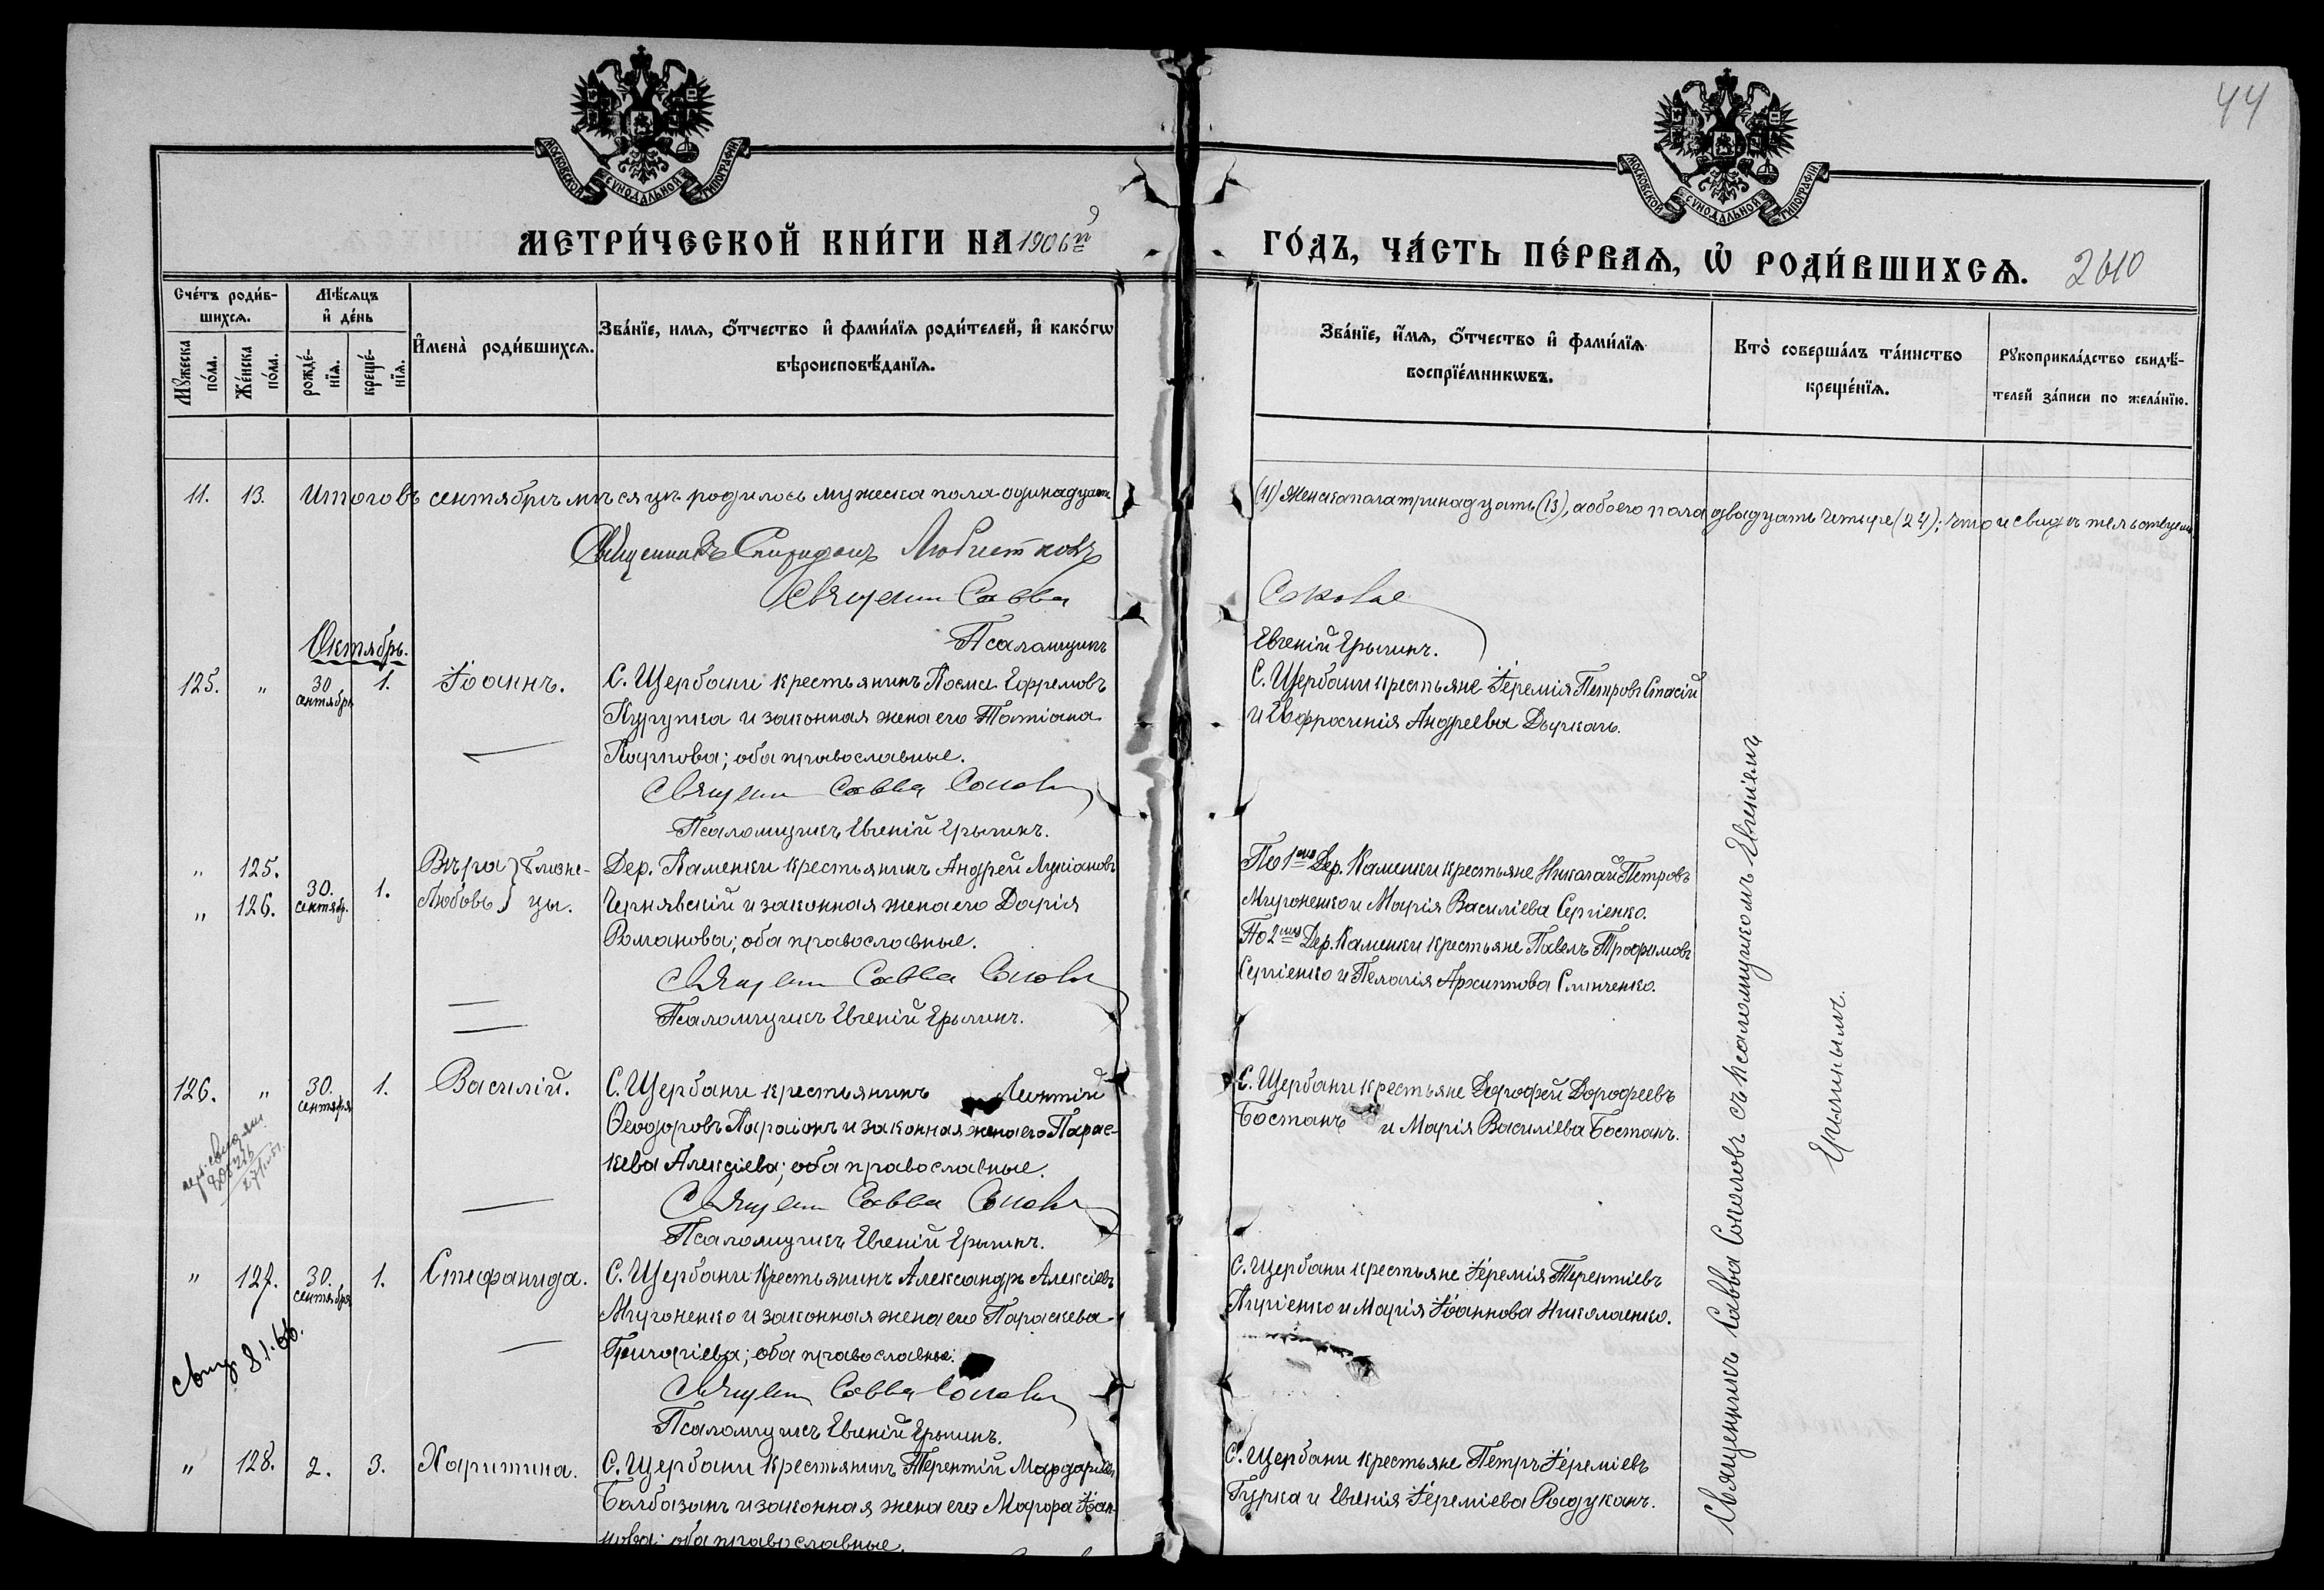 44
МОСКОВСКОЙ СѴНОДАЛЬНОЙ ТИПОГРАФІИ
МОСКОВСКОЙ СѴНОДАЛЬНОЙ ТИПОГРАФІИ
МЕТРИ́ЧЕСКОЙ КНИ́ГИ НА 1906й
ГО́ДЪ, ЧА́СТЬ ПЕ́РВАѦ, Ѡ РОДИ́ВШИХСѦ. 2610
Сче́тъ роди́в-
шихсѧ.
Мꙋжеска
по́ла.
Же́нска
по́ла.
Мѣ́сѧцъ
и҆ де́нь
рожде́-
нїѧ.
креще́-
нїѧ.
И҆мена̀ роди́вшихсѧ.
Зва́нїе, имѧ, ѻ҆́тчество и҆ фами́лїѧ роди́телей, и҆ како́гѡ
вѣроисповѣ́данїѧ.
Зва́нїе, и҆́мѧ, ѻ҆́тчество и҆ фами́лїѧ
воспрїе́мникѡвъ.
Кто̀ соверша́лъ та́инство
креще́нїѧ.
Рꙋкоприкла́дство свидѣ́-
телей за́писи по жела́нїю.
11. 13. Итого въ сентябрѣ мѣсяцѣ родилось мужеска пола одинадцать
(11) женска пола тринадцать (13), а обоего пола двадцать четыре (24); что и свидѣтельствуемъ
Священникъ Спиридонъ Любистковъ
Священ Савва Соколов
Псаломщикъ Евгеній Ерылинъ.
Октябрь.
125. " 30 сентября 1. Іоаннъ.
С. Щербани крестьянинъ Косма Ефремовъ
и законная жена его Татіана
Карпова; оба православные.
Священ Савва Соколов
Псаломщикъ Евгеній Ерылинъ.
С. Щербани крестьяне Іеремія Петровъ Стасій
и Евфросинія Андреева
" 125.
" 126.
30. сентяб. 1.
Вѣра } близне-
Любовь } цы.
Дер. Каменки крестьянинъ Андрей Лукіановъ
Чернявскій и законная жена его Дарія
Романова; оба православные.
Священ Савва Соколов
Псаломщикъ Евгеній Ерылинъ.
По 1ой Дер. Каменки крестьяне Николай Петровъ
Мироненко и Марія Василіева Сергіенко.
По 2ой Дер. Каменки крестьяне Павелъ Трофимовъ
Сергіенко и Пелагія Архиппова Слинченко.
126. " 30. сентября 1. Василій.
С. Щербани крестьянинъ Леонтій
Ѳеодоровъ Параіонъ и законная жена его Парас-
кева Алексіева; оба православные.
Священ Савва Соколов
Псаломщикъ Евгеній Ерылинъ.
С. Щербани крестьяне Дорофей Дорофеевъ
Бостанъ и Марія Василіева Бостанъ.
" 127. 30. сентября 1. Стефанида.
свид 8.1.66.
С. Щербани крестьянинъ Александръ Алексіевъ
Мироненко и законная жена его Параскева
Григоріева; оба православные.
Священ Савва Соколов
Псаломщикъ Евгеній Ерылинъ.
С. Щербани крестьяне Іеремія Терентіевъ
Киріенко и Марія Іоаннова Николаенко.
" 128. 2. 3. Харитина.
С. Щербани крестьянинъ Терентій Мардаріевъ
Балбазанъ и законная жена его Марфа Іоан-
нова; оба православные.
С. Щербани крестьяне Петръ Іереміевъ
Гурка и Евгенія Іереміева Радуканъ.
Священникъ Савва Соколовъ съ Псаломщикомъ Евгеніемъ
Ерылинымъ.